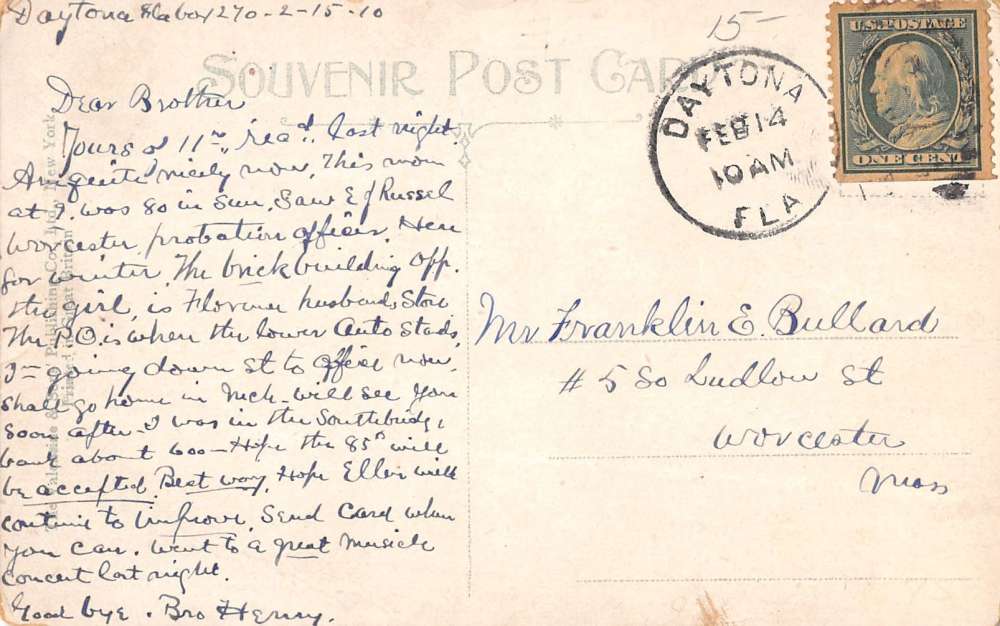 Daytona Fla box 270-2-15-10
15-
SOUVENIR POST CARD
U.S. POSTAGE
ONE CENT
DAYTONA
FEB 14
10 AM
FLA
Dear Brother
Yours of 11th, rec'd. last night.
Am quite nicely now. This morn
at 9. was 80 in sun. Saw E f Russel
Worcester probation officer. Here
for winter. The brick building opp.
the girl, is Florence husbands Store
The P.O. is where the lower Auto stads.
I= going down st to office now.
shall go home in Mch - will see you
soon after - I was in the Southbridge
bank about 600 - Hope the 85th will
be accepted. Best way. Hope Ellen will
continue to improve. Send Card when
you can. Went to a great musicle
concert last night.
Good bye. Bro Henry.
Mr Franklin E. Bullard
# 5 So Ludlow St
Worcester
Mass
Publishing Co., Ltd., New York
Printed in Great Britain